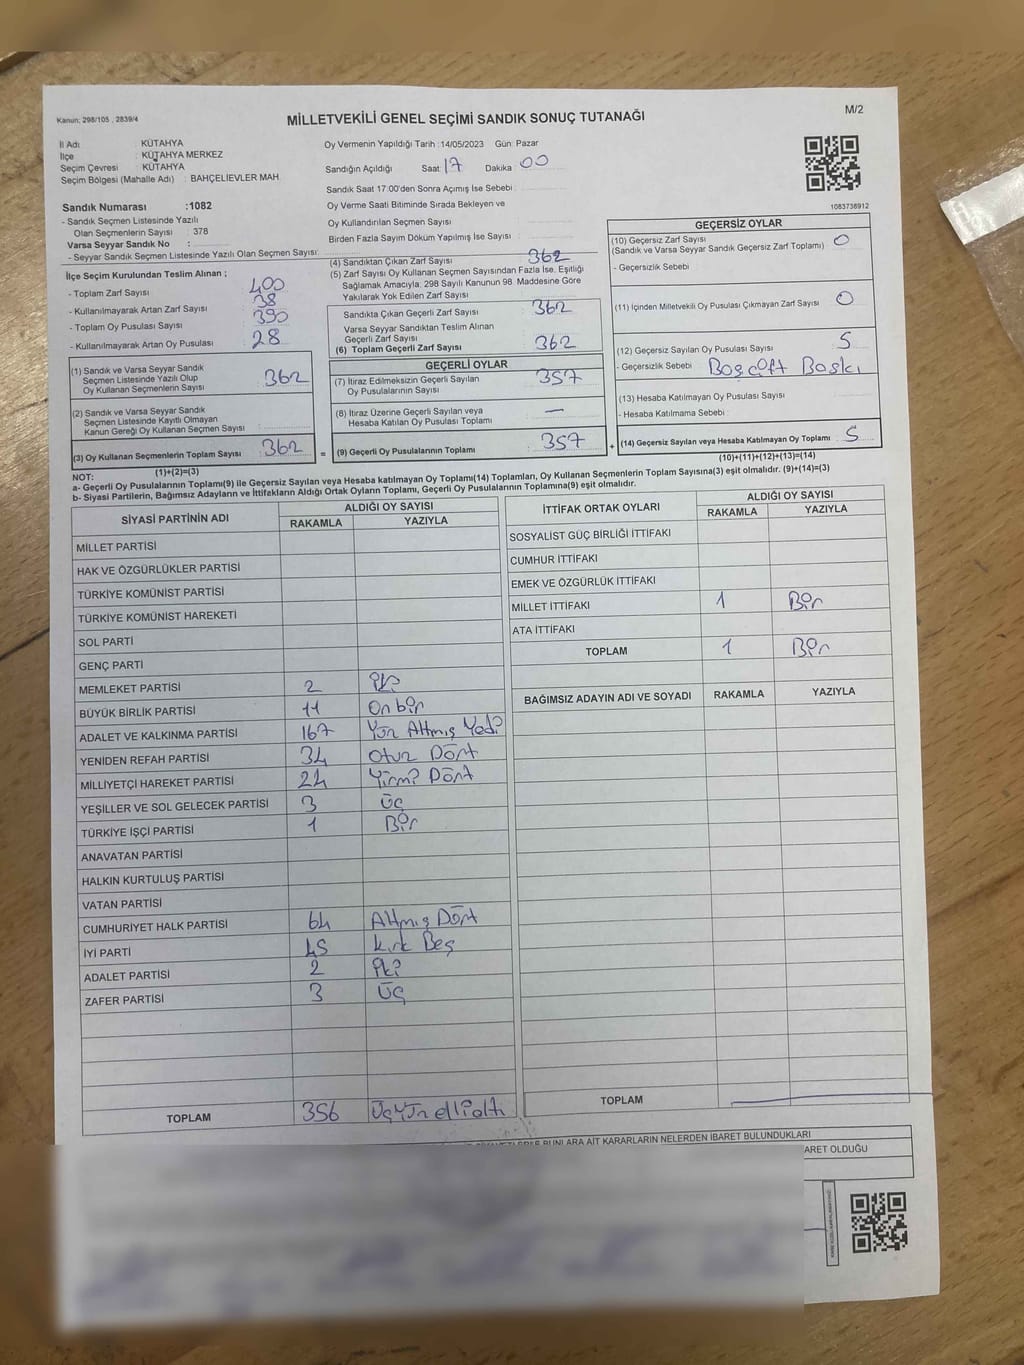 Kanun; 298/105 , 2839/4
MİLLETVEKİLİ GENEL SEÇİMİ SANDIK SONUÇ TUTANAĞI
M/2
İl Adı KÜTAHYA
İlçe : KÜTAHYA MERKEZ
Seçim Çevresi : KÜTAHYA
Seçim Bölgesi (Mahalle Adı) : BAHÇELİEVLER MAH.
Oy Vermenin Yapıldığı Tarih :14/05/2023 Gün: Pazar
Sandığın Açıldığı Saat 17 Dakika 00
Sandık Saat 17:00'den Sonra Açımış İse Sebebi :
Oy Verme Saati Bitiminde Sırada Bekleyen ve
Oy Kullandırılan Seçmen Sayısı
Birden Fazla Sayım Döküm Yapılmış İse Sayısı :
1083738912
Sandık Numarası :1082
- Sandık Seçmen Listesinde Yazılı
Olan Seçmenlerin Sayısı : 378
Varsa Seyyar Sandık No :
- Seyyar Sandık Seçmen Listesinde Yazılı Olan Seçmen Sayısı:
İlçe Seçim Kurulundan Teslim Alınan ;
- Toplam Zarf Sayısı 400
- Kullanılmayarak Artan Zarf Sayısı 38
- Toplam Oy Pusulası Sayısı 390
- Kullanılmayarak Artan Oy Pusulası 28
(1) Sandık ve Varsa Seyyar Sandık
Seçmen Listesinde Yazılı Olup
Oy Kullanan Seçmenlerin Sayısı : 362
(2) Sandık ve Varsa Seyyar Sandık
Seçmen Listesinde Kayıtlı Olmayan
Kanun Gereği Oy Kullanan Seçmen Sayısı :
(3) Oy Kullanan Seçmenlerin Toplam Sayısı : 362
(1)+(2)=(3)
(4) Sandıktan Çıkan Zarf Sayısı : 362
(5) Zarf Sayısı Oy Kullanan Seçmen Sayısından Fazla İse, Eşitliği
Sağlamak Amacıyla, 298 Sayılı Kanunun 98. Maddesine Göre
Yakılarak Yok Edilen Zarf Sayısı
Sandıkta Çıkan Geçerli Zarf Sayısı : 362
Varsa Seyyar Sandıktan Teslim Alınan
Geçerli Zarf Sayısı
(6) Toplam Geçerli Zarf Sayısı : 362
GEÇERLİ OYLAR
(7) İtiraz Edilmeksizin Geçerli Sayılan
Oy Pusulalarının Sayısı : 357
(8) İtiraz Üzerine Geçerli Sayılan veya
Hesaba Katılan Oy Pusulası Toplamı : —
= (9) Geçerli Oy Pusulalarının Toplamı : 357 +
GEÇERSİZ OYLAR
(10) Geçersiz Zarf Sayısı
(Sandık ve Varsa Seyyar Sandık Geçersiz Zarf Toplamı) : 0
- Geçersizlik Sebebi
(11) İçinden Milletvekili Oy Pusulası Çıkmayan Zarf Sayısı : 0
(12) Geçersiz Sayılan Oy Pusulası Sayısı : 5
- Geçersizlik Sebebi : Boş Çift Baskı
(13) Hesaba Katılmayan Oy Pusulası Sayısı :
- Hesaba Katılmama Sebebi :
(14) Geçersiz Sayılan veya Hesaba Katılmayan Oy Toplamı : 5
(10)+(11)+(12)+(13)=(14)
NOT:
a- Geçerli Oy Pusulalarının Toplamı(9) ile Geçersiz Sayılan veya Hesaba katılmayan Oy Toplamı(14) Toplamları, Oy Kullanan Seçmenlerin Toplam Sayısına(3) eşit olmalıdır. (9)+(14)=(3)
b- Siyasi Partilerin, Bağımsız Adayların ve İttifakların Aldığı Ortak Oyların Toplamı, Geçerli Oy Pusulalarının Toplamına(9) eşit olmalıdır.
SİYASİ PARTİNİN ADI ALDIĞI OY SAYISI
RAKAMLA YAZIYLA
MİLLET PARTİSİ
HAK VE ÖZGÜRLÜKLER PARTİSİ
TÜRKİYE KOMÜNİST PARTİSİ
TÜRKİYE KOMÜNİST HAREKETİ
SOL PARTİ
GENÇ PARTİ
MEMLEKET PARTİSİ 2 iki
BÜYÜK BİRLİK PARTİSİ 11 On bir
ADALET VE KALKINMA PARTİSİ 167 Yüz Altmış Yedi
YENİDEN REFAH PARTİSİ 34 Otuz Dört
MİLLİYETÇİ HAREKET PARTİSİ 24 Yirmi Dört
YEŞİLLER VE SOL GELECEK PARTİSİ 3 Üç
TÜRKİYE İŞÇİ PARTİSİ 1 Bir
ANAVATAN PARTİSİ
HALKIN KURTULUŞ PARTİSİ
VATAN PARTİSİ
CUMHURİYET HALK PARTİSİ 64 Altmış Dört
İYİ PARTİ 45 Kırk Beş
ADALET PARTİSİ 2 iki
ZAFER PARTİSİ 3 Üç
TOPLAM 356 Üçyüz elli altı
İTTİFAK ORTAK OYLARI ALDIĞI OY SAYISI
RAKAMLA YAZIYLA
SOSYALİST GÜÇ BİRLİĞİ İTTİFAKI
CUMHUR İTTİFAKI
EMEK VE ÖZGÜRLÜK İTTİFAKI
MİLLET İTTİFAKI 1 Bir
ATA İTTİFAKI
TOPLAM 1 Bir
BAĞIMSIZ ADAYIN ADI VE SOYADI RAKAMLA YAZIYLA
TOPLAM
BUNLARA AİT KARARLARIN NELERDEN İBARET BULUNDUKLARI
ARET OLDUĞU